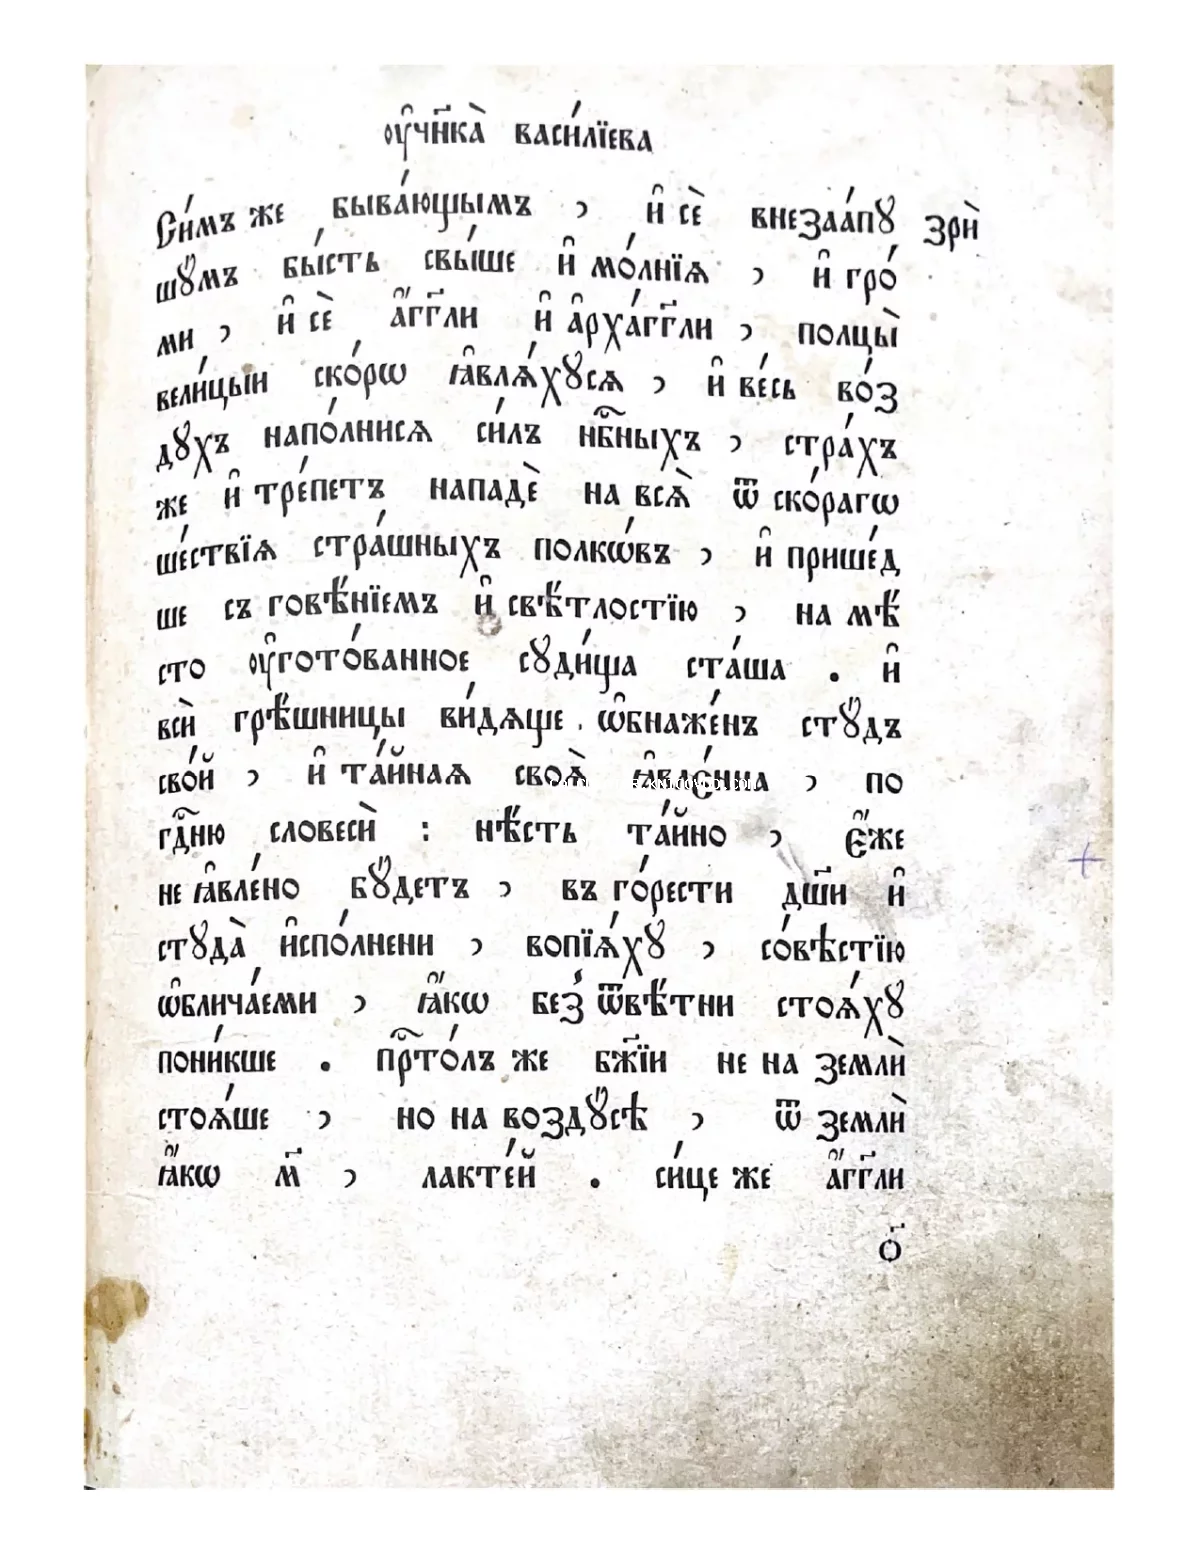 ᲂу҆чн҃ка̀ васи́лїева
Си́мъ же быва́ющымъ , и҆ сѐ внеза́апꙋ зрѝ
шꙋ́мъ бы́сть свы́ше и҆ мо́лнїѧ , и҆ гро́
ми , и҆ сѐ а҆́гг҃ли и҆ а҆рха́гг҃ли , полцы̀
вели́цыи ско́рѡ ꙗ҆влѧ́хꙋсѧ , и҆ ве́сь во́з
дꙋхъ напо́лнисѧ си́лъ нб҃ныхъ , стра́хъ
же и҆ тре́петъ нападѐ на всѧ̀ ѿ ско́рагѡ
ше́ствїѧ стра́шныхъ полкѡ́въ , и҆ прише́д
ше съ говѣ́нїемъ и҆ свѣ́тлостїю , на мѣ́
сто ᲂу҆гото́ванное сꙋди́ща ста́ша . и҆
всѝ грѣ́шницы ви́дѧще . ѡ҆бнаже́нъ стꙋ́дъ
сво́й , и҆ та́йнаѧ своѧ̀ ꙗ҆вле́нна , по
гдⷭ҇ню словесѝ : нѣ́сть та́йно , є҆́же
не ꙗ҆вле́но бꙋ́детъ , въ го́рести дш҃и и҆
стꙋда̀ и҆спо́лнени , вопїѧ́хꙋ , со́вѣстїю
ѡ҆блича́еми , ꙗ҆́кѡ без̾ ѿвѣ́тни стоѧ́хꙋ
пони́кше . прⷭ҇то́лъ же бж҃їи не на землѝ
стоѧ́ше , но на воздꙋ́сѣ , ѿ землѝ
ꙗ҆́кѡ м҃ , лакте́й . си́це же а҆́гг҃ли
о҃